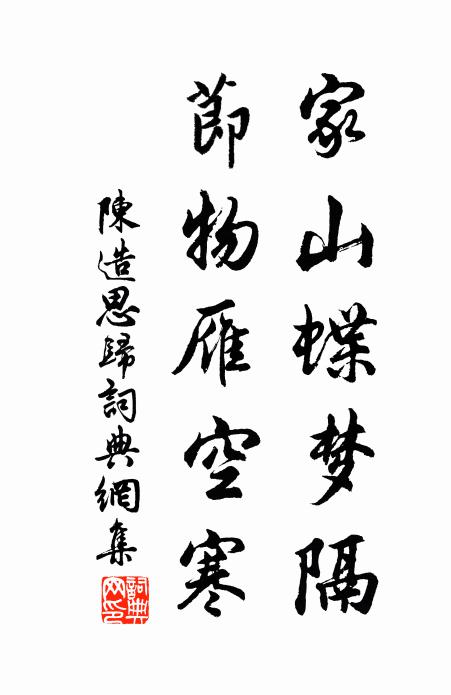 家山蝶梦隔
節物雁空寒
陳造思歸詞典網集
詞典网印